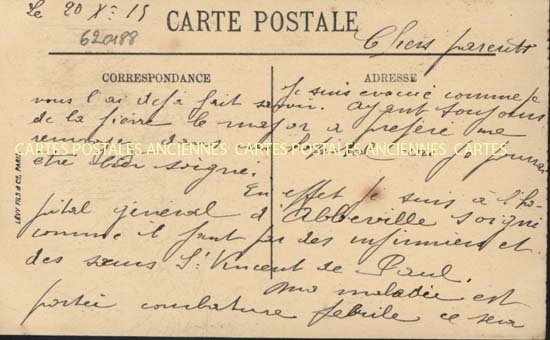 Le 20 Xre 15
CARTE POSTALE
620188
Chers parents
CORRESPONDANCE
ADRESSE
Je suis évacué comme je
vous l'ai déjà fait savoir. ayant toujours
de la fièvre le major a préféré me
renvoyer dans je pourrai
être bien soigné.
CARTES POSTALES ANCIENNES CARTES POSTALES ANCIENNES CARTES
En effet je suis à l'hô-
pital général d'Abbeville soigné
comme il faut par des infirmiers et
des sœurs St Vincent de Paul.
Ma maladie est
portée courbature fébrile ce sera
LÉVY FILS & Cie, PARIS